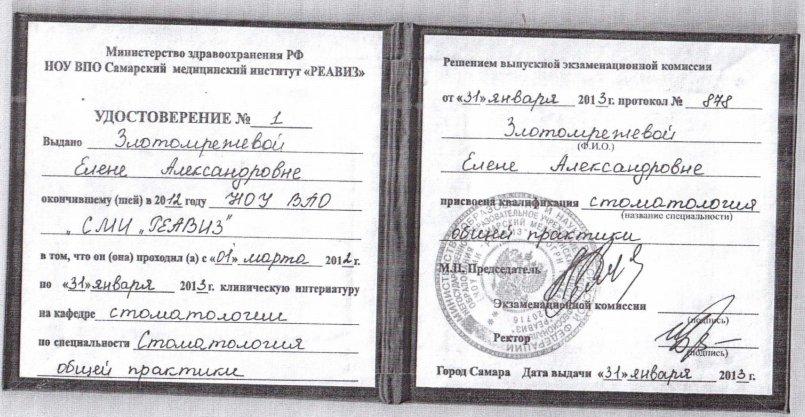 Министерство здравоохранения РФ
НОУ ВПО Самарский медицинский институт «РЕАВИЗ»
УДОСТОВЕРЕНИЕ № 1
Выдано Злотомрежевой
Елене Александровне
окончившему (шей) в 2012 году НОУ ВПО
„СМИ „РЕАВИЗ"
в том, что он (она) проходил (а) с «01» марта 2012г.
по «31» января 2013г. клиническую интернатуру
на кафедре стоматологии
по специальности Стоматология
общей практики
Решением выпускной экзаменационной комиссии
от «31» января 2013г. протокол № 878
Злотомрежевой
(Ф.И.О.)
Елене Александровне
присвоена квалификация стоматология
(название специальности)
общей практики
М.П. Председатель
Экзаменационной комиссии
(подпись)
Ректор
(подпись)
Город Самара Дата выдачи «31» января 2013г.